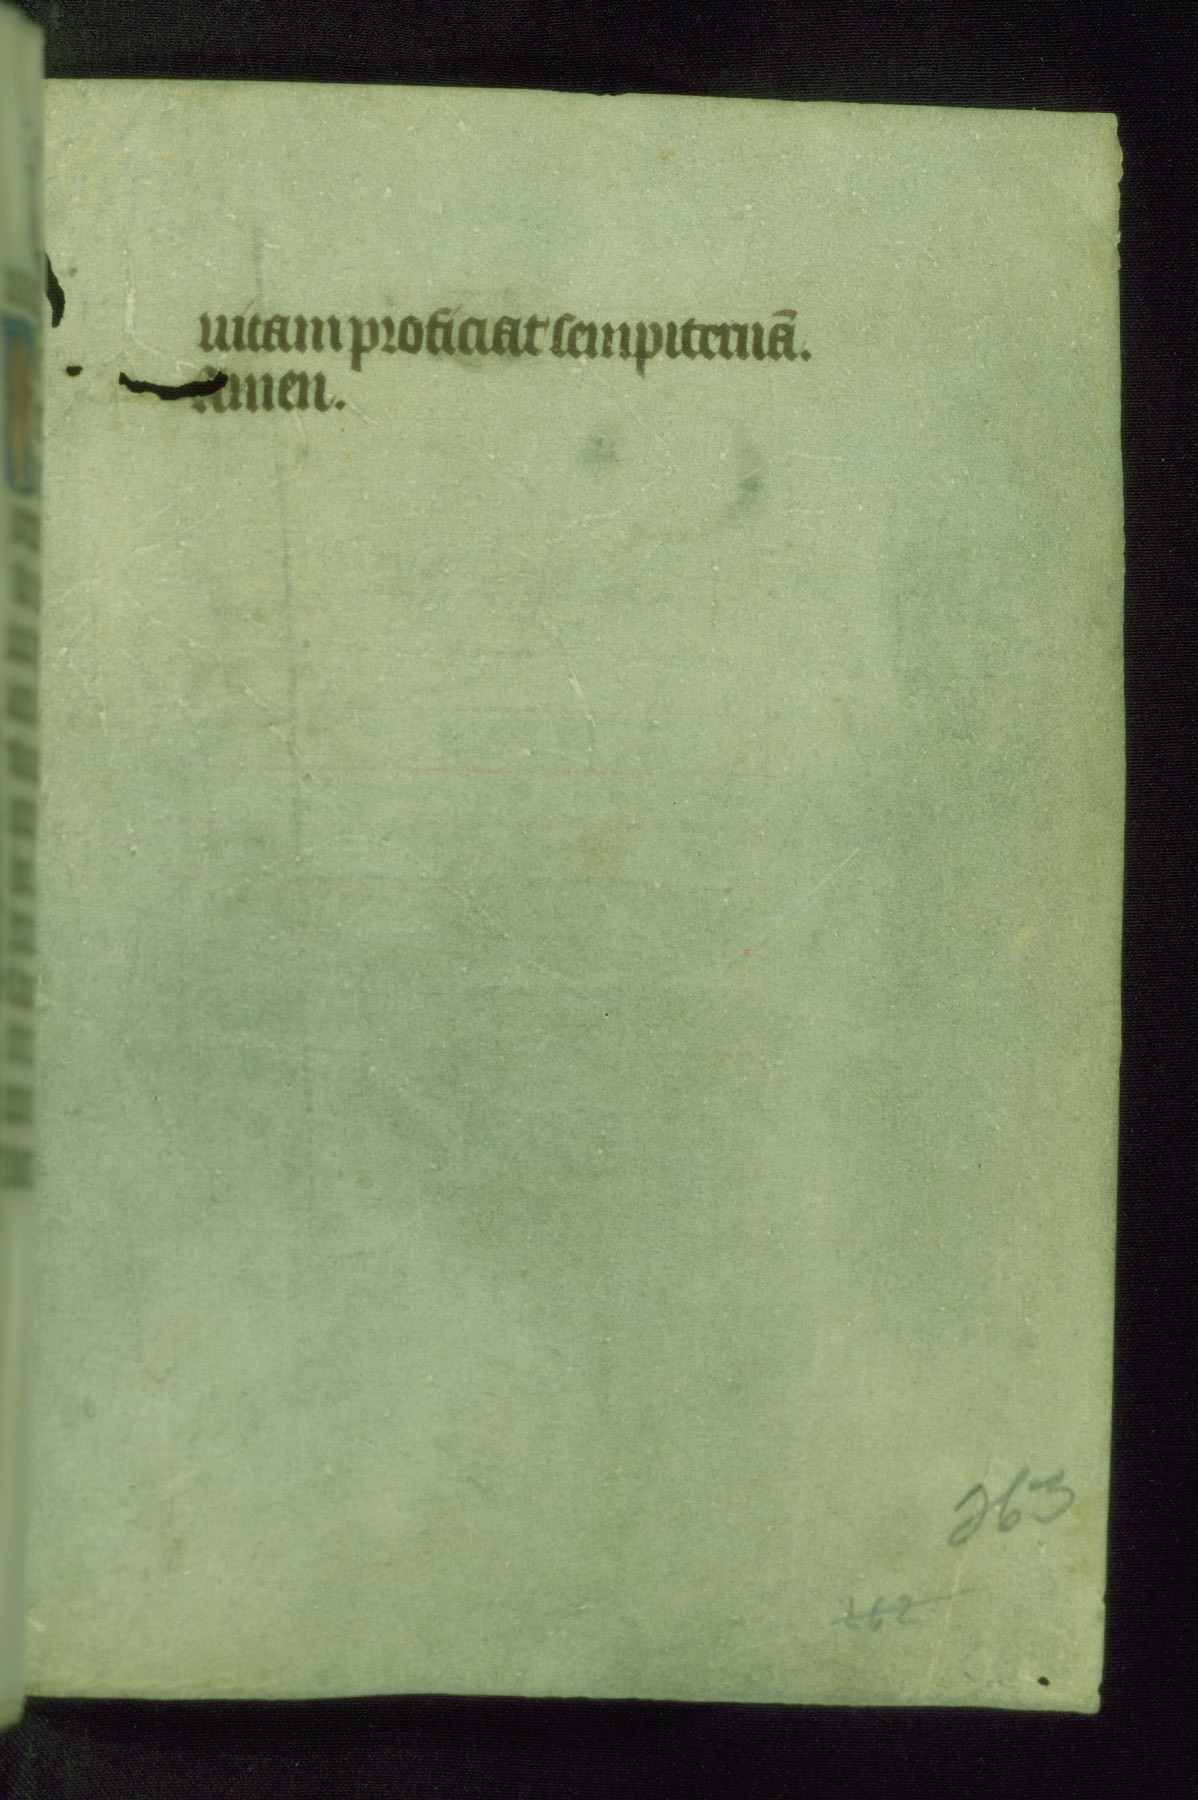 uitam proficiat sempiternā.
Amen.
263
262